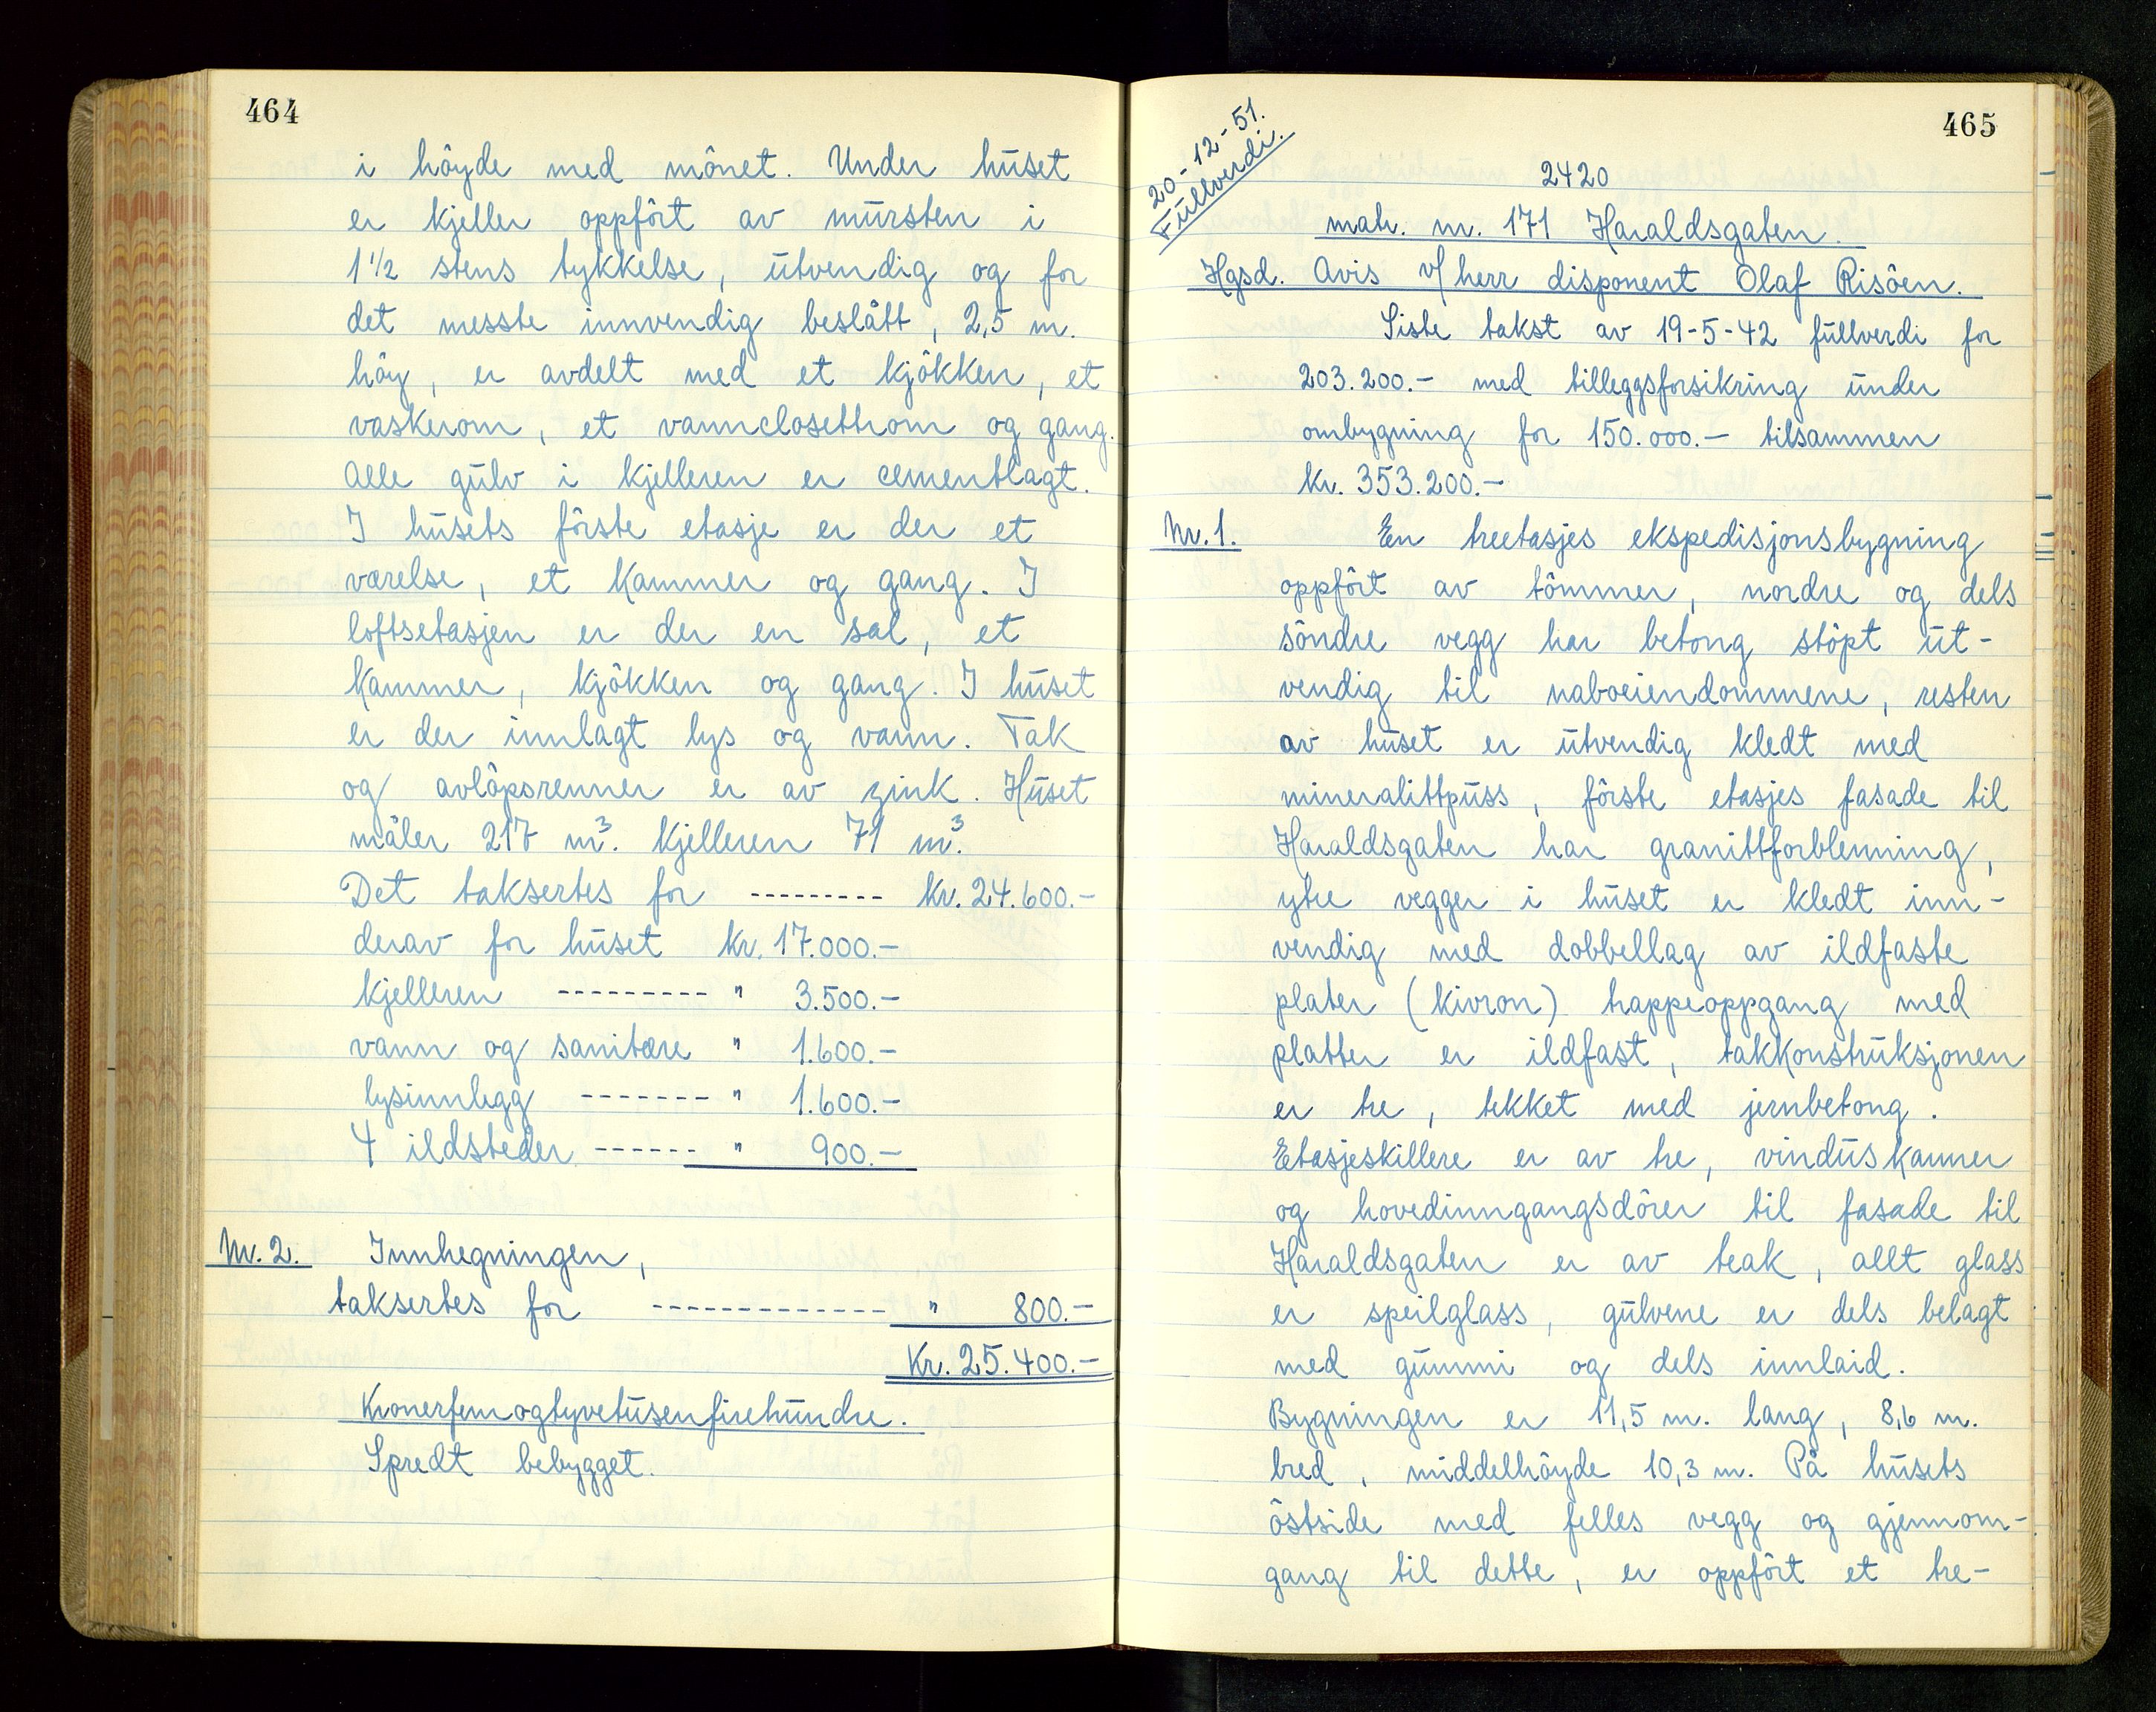 464
i höyde med mönet. Under huset
er kjeller oppfört av mursten i
1½ stens tykkelse, utvendig og for
det messte innvendig beslått, 2,5 m.
höy, er avdelt med et kjökken, et
vaskerom, et vannclosettrom og gang.
Alle gulv i kjelleren er cementlagt.
I husets förste etasje er der et
værelse, et kammer og gang. I
loftsetasjen er der en sal, et
kammer, kjökken og gang. I huset
er der innlagt lys og vann. Tak
og avlöpsrenner er av zink. Huset
måler 217 m³. Kjelleren 71 m³.
Det taksertes for --------- Kr. 24.600.-
derav for huset Kr. 17.000.-
kjelleren --------- " 3.500.-
vann og sanitære " 1.600.-
lysinnlegg ------- " 1.600.-
4 ildsteder ------ " 900.-
Nr. 2. Innhegningen,
taksertes for ------------- " 800.-
Kr. 25.400.-
Kronerfemogtyvetusenfirehundre.
Spredt bebygget.
465
20-12-51.
Fullverdi.
2420
matr. nr. 171 Haraldsgaten.
Hgsd. Avis v/ herr disponent Olaf Risöen.
Siste takst av 19-5-42 fullverdi for
203.200.- med tilleggsforsikring under
ombygning for 150.000.- tilsammen
Kr. 353.200.-
Nr. 1. En treetasjes ekspedisjonsbygning
oppfört av tömmer, nordre og dels
söndre vegg har betong stöpt ut-
vendig til naboeiendommene, resten
av huset er utvendig kledt med
mineralittpuss, förste etasjes fasade til
Haraldsgaten har granittforblenning,
ytre vegger i huset er kledt inn-
vendig med dobbellag av ildfaste
plater (kivron) trappeoppgang med
platter er ildfast, takkonstruksjonen
er tre, tekket med jernbetong.
Etasjeskillere er av tre, vinduskarmer
og hovedinngangsdörer til fasade til
Haraldsgaten er av teak, allt glass
er speilglass, gulvene er dels belagt
med gummi og dels innlaid.
Bygningen er 11,5 m. lang, 8,6 m.
bred, middelhöyde 10,3 m. På husets
östside med felles vegg og gjennom-
gang til dette, er oppfört et tre-